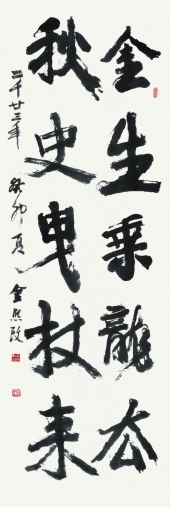 金生乘龍去
秋史曳杖來
二千廿三年 癸卯夏 金熙政